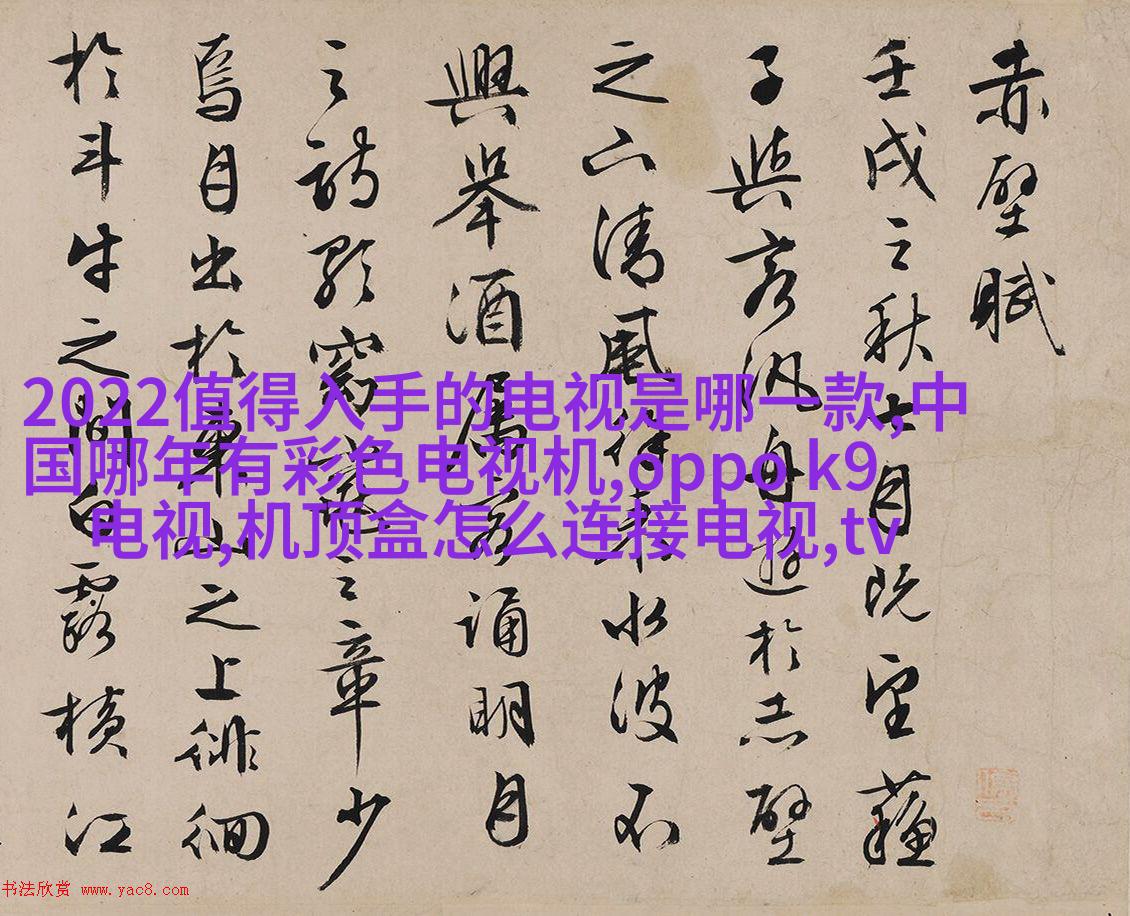 赤壁賦
壬戌之秋七月既望蘇
子與客汎舟遊於赤壁
之下清風徐來水波不
興舉酒屬客誦明月
之詩歌窈窕之章少
焉月出於東山之上徘徊
於斗牛之間白露橫江
2022值得入手的电视是哪一款,中
国哪年有彩色电视机,oppo k9
电视,机顶盒怎么连接电视,tv
书法欣赏 www.yac8.com